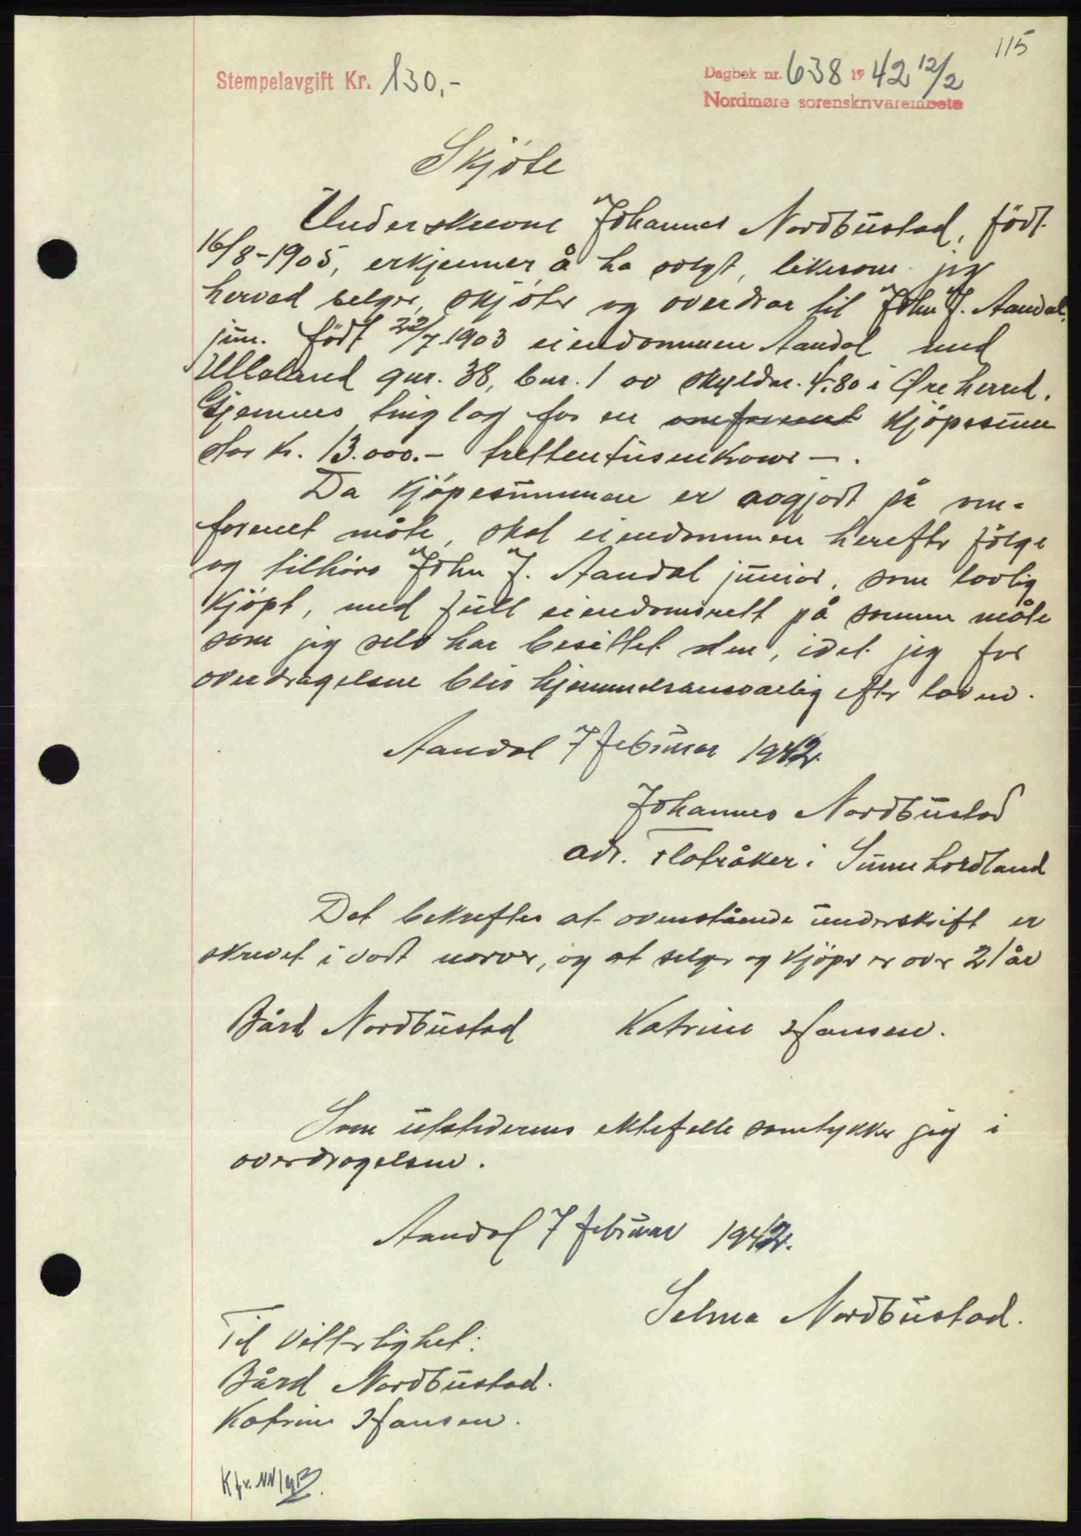 115
Stempelavgift Kr. 130,-
Dagbok nr. 638 1942 12/2
Nordmøre sorenskriverembete
Skjöte
Underskrevne Johannes Nordbustad, född
16/8-1905, erkjenner å ha solgt, likesom jeg
herved selger, skjöter og overdrar til John J. Aandal,
jun. född 22/7 1903 eiendommen Aandal med
Ulleland gnr. 38, bnr. 1 av skyldm. 4.80 i Øre herred,
Gjemnes tinglag for en omforenet kjöpesum
stor kr. 13.000.- trettentusenkroner -.
Da kjöpesummen er avgjort på om-
forenet måte, skal eiendommen herefter fölge
og tilhöre John J. Aandal junior, som lovlig
kjöpt, med full eiendomsrett på samme måte
som jeg selv har besittet den, idet jeg for
overdragelsen blir hjemmelsansvarlig efter loven.
Aandal 7 februar 1942.
Johannes Nordbustad
adr. Flatråker i Sunnhordland
Det bekreftes at ovenstående underskrift er
skrevet i vort nærvær, og at selger og kjöper er over 21 år
Bård Nordbustad Katrine Hansen.
Som utstederens ektefelle samtykker jeg i
overdragelsen.
Aandal 7 februar 1942.
Selma Nordbustad.
Til vitterlighet:
Bård Nordbustad.
Katrine Hansen.